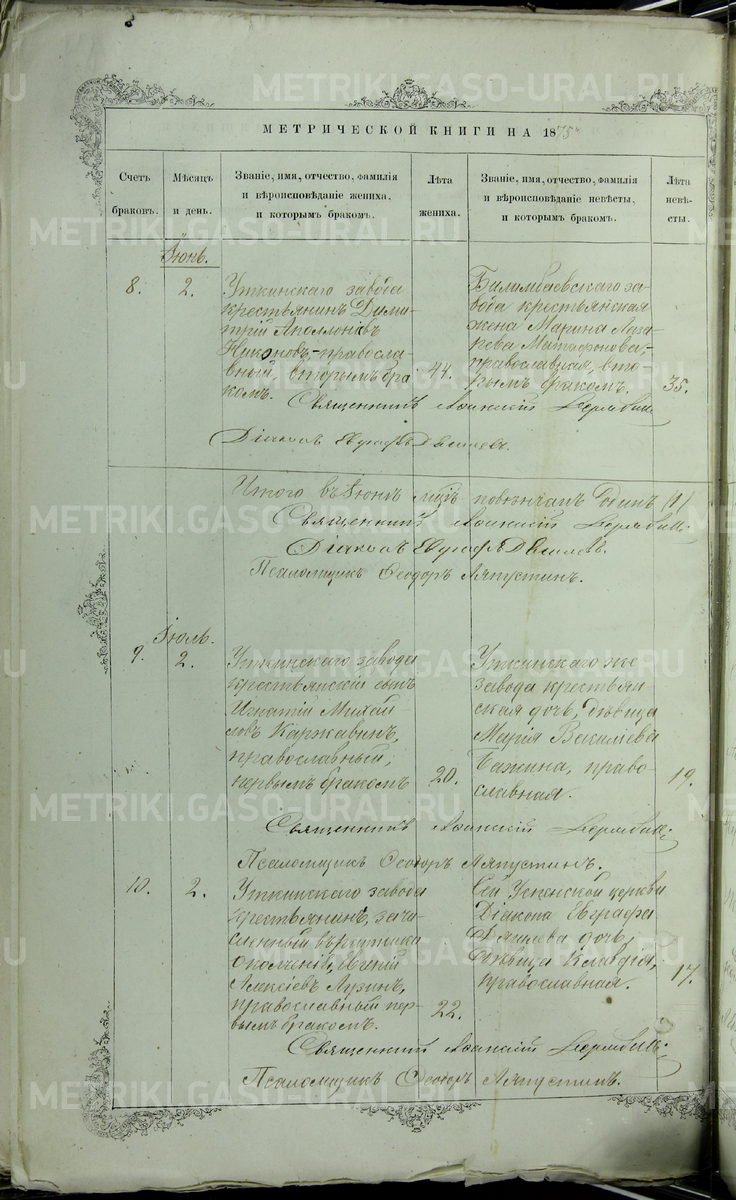 МЕТРИЧЕСКОЙ КНИГИ НА 1875
Счетъ
браковъ.
Мѣсяцъ
и день.
Званіе, имя, отчество, фамилія
и вѣроисповѣданіе жениха,
и которымъ бракомъ.
Лѣта
жениха.
Званіе, имя, отчество, фамилія
и вѣроисповѣданіе невѣсты,
и которымъ бракомъ.
Лѣта
невѣ-
сты.
Іюнь.
8.
2.
Уткинскаго завода
крестьянинъ Дими-
трій Аполлоніевъ
Никоновъ, правосла-
вный, вторымъ бра
комъ.
44.
Билимбаевскаго за-
вода крестьянская
жена Марина Лаза-
рева Матафонова,
православная, вто-
рымъ бракомъ.
35.
Священникъ
Діаконъ Евграфъ
Итого въ Іюнѣ мцѣ повѣнчанъ одинъ (1)
Священникъ
Діаконъ Евграфъ
Псаломщикъ Ѳеодоръ Ляпустинъ.
Іюль.
9.
2.
Уткинскаго завода
крестьянскій сынъ
Игнатій Михай
ловъ Каржавинъ,
православный,
первымъ бракомъ
20.
Уткинскаго же
завода крестьян
ская дочь, дѣвица
Марія Василіева
Бажина, право-
славная.
19.
Священникъ
Псаломщикъ Ѳеодоръ Ляпустинъ.
10.
2.
Уткинскаго завода
крестьянинъ, зачи-
сленный въ ратники
ополченія,
Алексіевъ Лузинъ,
православный пер-
вымъ бракомъ.
22.
Сей Успенской церкви
Діакона Евграфа
дочь,
дѣвица Клавдія,
православная.
17.
Священникъ
Псаломщикъ Ѳеодоръ Ляпустинъ.
METRIKI.GASO-URAL.RU